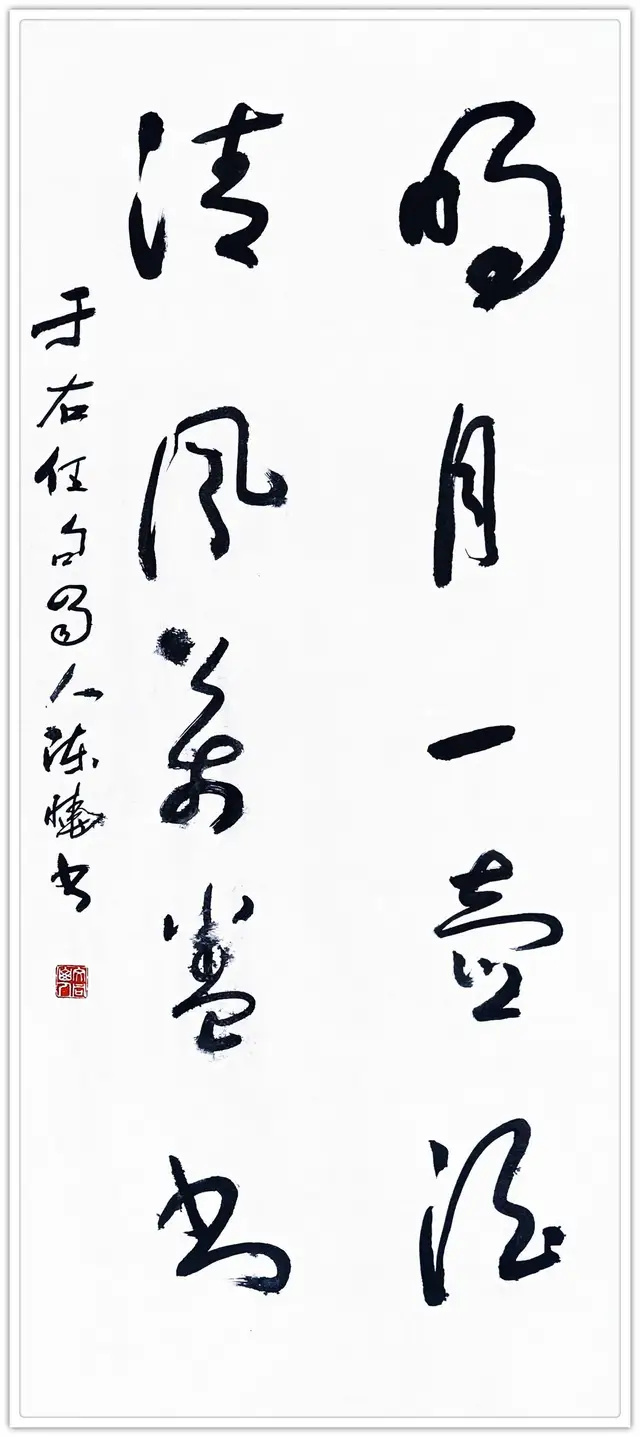 明月一壺酒
清風萬卷書
于右任句蜀人陳曉書